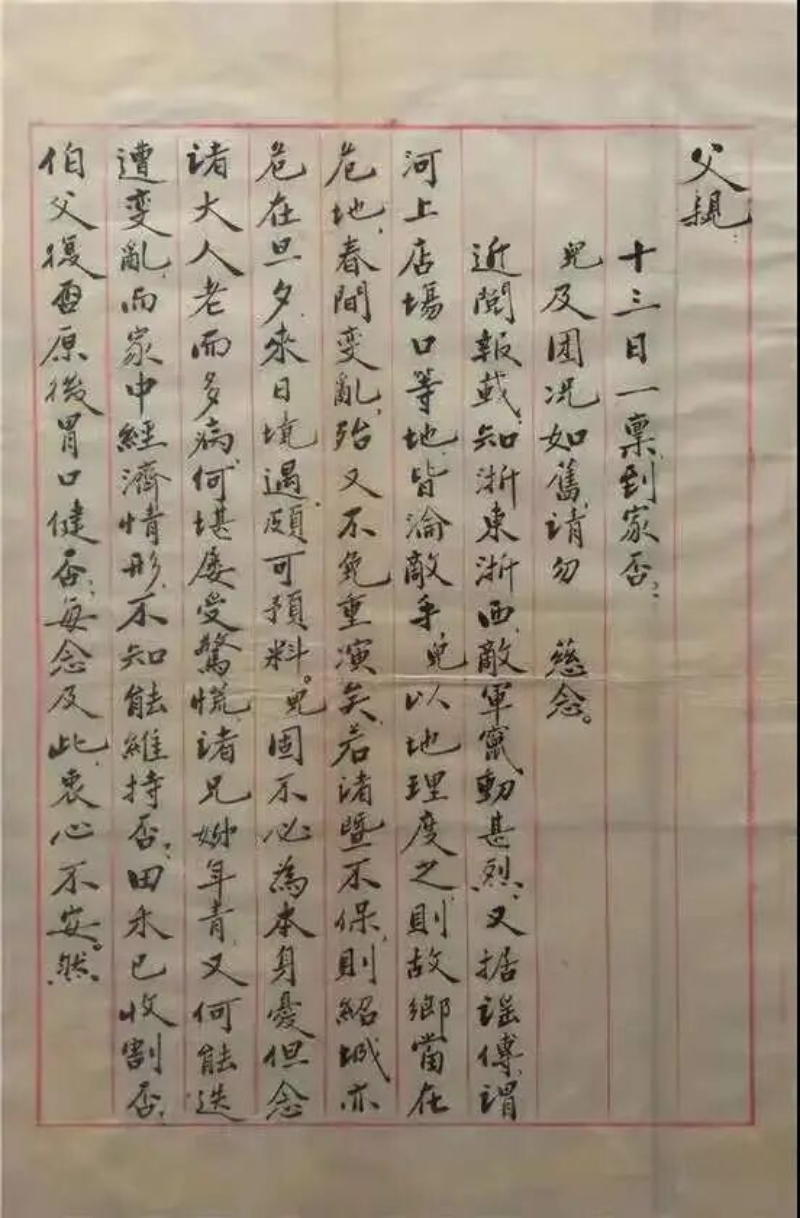 父親：
十三日一稟，到家否？
兒及团况如舊，請勿　慈念。
近閱報載，知浙東浙西，敵軍竄動甚烈，又据謡傳，謂
河上店場口等地，皆淪敵手，兒以地理度之，則故鄉當在
危地，春間变亂，殆又不免重演矣，若諸暨不保，則紹城亦
危在旦夕，来日境遇，頗可預料。兒固不必為本身憂，但念
諸大人老而多病，何堪屡受驚慌，諸兄姊年青，又何能迭
遭变亂，而家中經濟情形，不知能維持否？田禾已收割否？
伯父復否原後胃口健否？每念及此，衷心不安。然